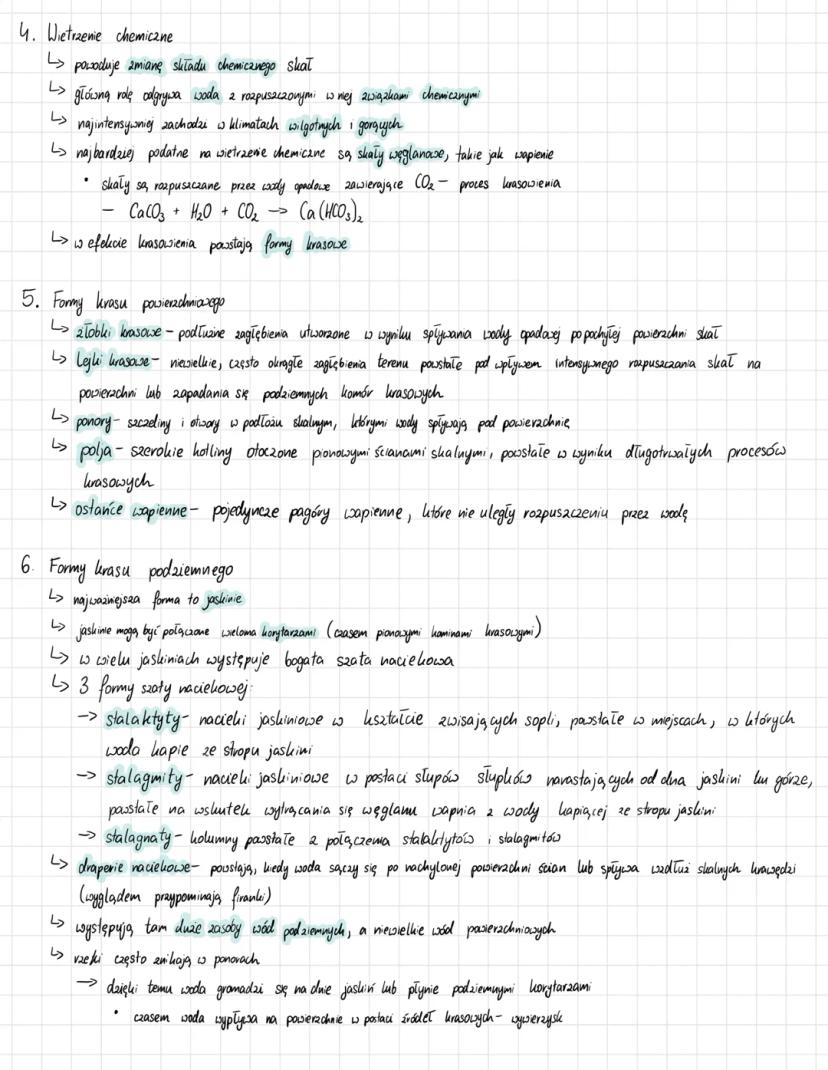 4. Wietrzenie chemiczne
↳ powoduje zmianę składu chemicznego skał
↳ główną rolę odgrywa woda z rozpuszczonymi w niej związkami chemicznymi
↳ najintensywniej zachodzi w klimatach wilgotnych i gorących
↳ najbardziej podatne na wietrzenie chemiczne są skały węglanowe, takie jak wapienie
• skały są rozpuszczane przez wody opadowe zawierające CO₂ – proces krasowienia
– CaCO₃ + H₂O + CO₂ → Ca(HCO₃)₂
↳ w efekcie krasowienia powstają formy krasowe
5. Formy krasu powierzchniowego
↳ żłobki krasowe – podłużne zagłębienia utworzone w wyniku spływania wody opadowej po pochyłej powierzchni skał
↳ lejki krasowe – niewielkie, często okrągłe zagłębienia terenu powstałe pod wpływem intensywnego rozpuszczania skał na
powierzchni lub zapadania się podziemnych komór krasowych
↳ ponory – szczeliny i otwory w podłożu skalnym, którymi wody spływają pod powierzchnię
↳ polja – szerokie kotliny otoczone pionowymi ścianami skalnymi, powstałe w wyniku długotrwałych procesów
krasowych
↳ ostańce wapienne – pojedyncze pagóry wapienne, które nie uległy rozpuszczeniu przez wodę
6. Formy krasu podziemnego
↳ najważniejsza forma to jaskinie
↳ jaskinie mogą być połączone wieloma korytarzami (czasem pionowymi kominami krasowymi)
↳ w wielu jaskiniach występuje bogata szata naciekowa
↳ 3 formy szaty naciekowej:
→ stalaktyty – nacieki jaskiniowe w kształcie zwisających sopli, powstałe w miejscach, w których
woda kapie ze stropu jaskini
→ stalagmity – nacieki jaskiniowe w postaci słupów słupków narastających od dna jaskini ku górze,
powstałe na wskutek wytrącania się węglanu wapnia z wody kapiącej ze stropu jaskini
→ stalagnaty – kolumny powstałe z połączenia stalaktytów i stalagmitów
↳ draperie naciekowe – powstają, kiedy woda sączy się po nachylonej powierzchni ścian lub spływa wzdłuż skalnych krawędzi
(wyglądem przypominają firanki)
↳ występują tam duże zasoby wód podziemnych, a niewielkie wód powierzchniowych
↳ rzeki często znikają w ponorach
→ dzięki temu woda gromadzi się na dnie jaskiń lub płynie podziemnymi korytarzami
• czasem woda wypływa na powierzchnie w postaci źródeł krasowych – wywierzysk